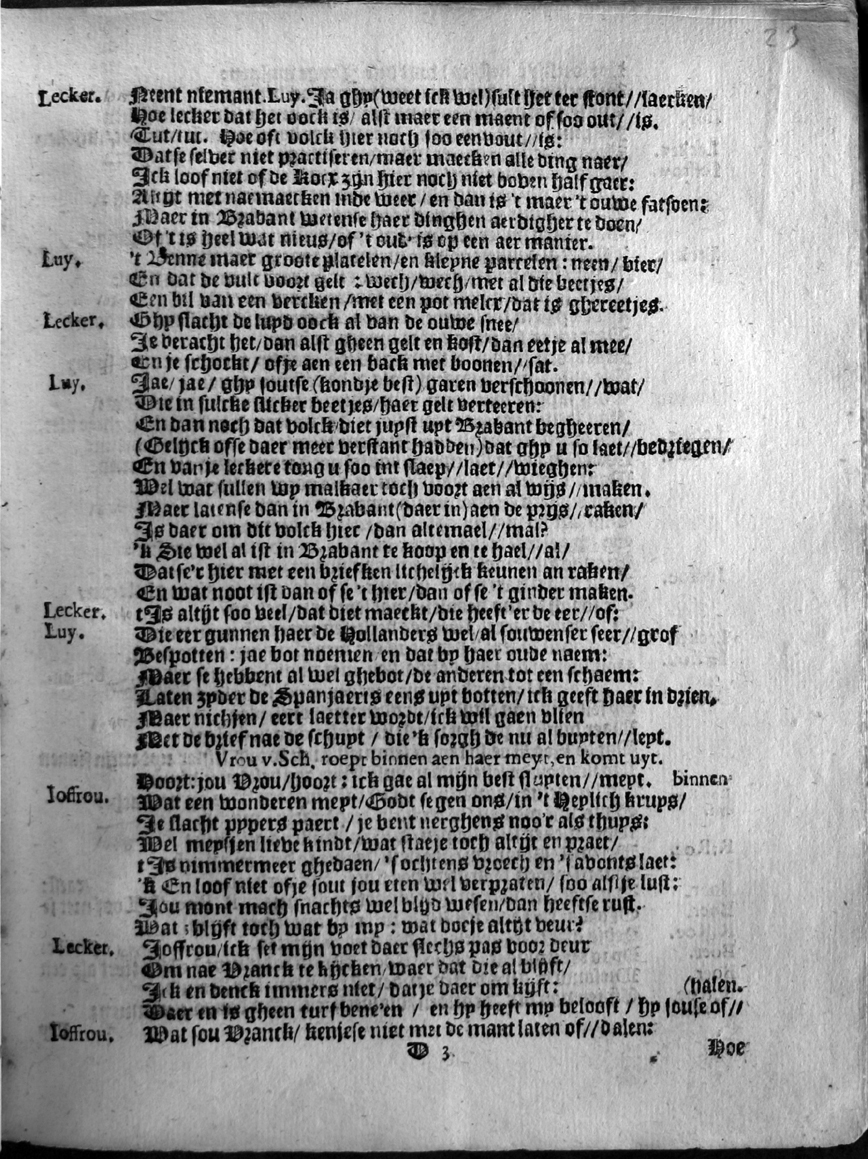 23
Lecker. Neent niemant. Luy. Ja ghy (weet ick wel) sult het ter stont//laecken/
Hoe lecker dat het oock is/ alst maer een maent of soo out//is.
Tut/tut. Hoe oft volck hier noch soo eenvout//is:
Datse selver niet practiseren/maer maecken alle ding naer/
Ick loof niet of de Kocx zijn hier noch niet boven half gaer:
Altijt met naemaecken inde weer/ en dan is 't maer 't ouwe fatsoen:
Maer in Brabant wetense haer dinghen aerdigher te doen/
Of 't is heel wat nieus/of 't oud' is op een aer manier.
Luy. 't Benne maer groote platelen/en kleyne parcelen: neen/ hier/
En dat de vult voort gelt: wech/wech/met al die beetjes/
Een bil van een vercken/met een pot melck/dat is ghereetjes.
Lecker. Ghy slacht de luyd oock al van de ouwe snee/
Je veracht het/dan alst gheen gelt en kost/dan eetje al mee/
En je schockt/ ofje aen een back met boonen//sat.
Luy. Jae/ jae/ ghy soutse (kondje best) garen verschoonen//wat/
Die in sulcke slicker beetjes/haer gelt verteeren:
En dan noch dat volck diet juyst uyt Brabant begheeren/
(Gelijck ofse daer meer verstant hadden) dat ghy u so laet//bedriegen/
En van je leckere tong u soo int slaep//laet//wieghen:
Wel wat sullen wy malkaer toch voort aen al wijs//maken.
Maer latense dan in Brabant (daer in) aen de prijs//raken/
Is daer om dit volck hier/dan altemael//mal?
'k Sie wel al ist in Brabant te koop en te hael//al/
Datse'r hier met een briefken lichelijck keunen an raken/
En wat noot ist dan of se 't hier/dan of se 't ginder maken.
Lecker. t Is altijt soo veel/dat diet maeckt/die heeft'er de eer//of:
Luy. Die eer gunnen haer de Hollanders wel/al souwenser seer//grof
Bespotten: jae bot noemen en dat by haer oude naem:
Maer se hebbent al wel ghebot/de anderen tot een schaem:
Laten zyder de Spanjaerts eens uyt botten/ick geeft haer in drien.
Maer nichjen/ eert laetter wordt/ick wil gaen vlien
Met de brief nae de schuyt/ die 'k sorgh de nu al buyten//leyt.
Vrou v.Sch. roept binnen aen haer meyt, en komt uyt.
Hoort: jou Vrou/hoort: ick gae al mijn best sluyten//meyt. binnen
Ioffrou. Wat een wonderen meyt/Godt segen ons/in 't Heylich kruys/
Je slacht pypers paert/ je bent nerghens noo'r als thuys:
Wel meysjen lieve kindt/wat staeje toch altijt en praet/
t Is nimmermeer ghedaen/ 's ochtens vroech en 's avonts laet:
'k En loof niet ofje sout jou eten wel verpraten/ soo alsje lust:
Jou mont mach snachts wel blijd wesen/dan heeftse rust.
Wat schijft toch wat by my: wat doeje altijt veur?
Lecker. Joffrou/ick set mijn voet daer slechs pas voor deur
Om nae Vranck te kijcken/waer dat die al blijft/
Ick en denck immers niet/ datje daer om kijft: (halen.
Daer en is gheen turf bene'en / en hy heeft my belooft/ hy souse of//
Ioffrou. Wat sou Vranck/ kenjese niet met de mant laten of//dalen:
D 3 Hoe